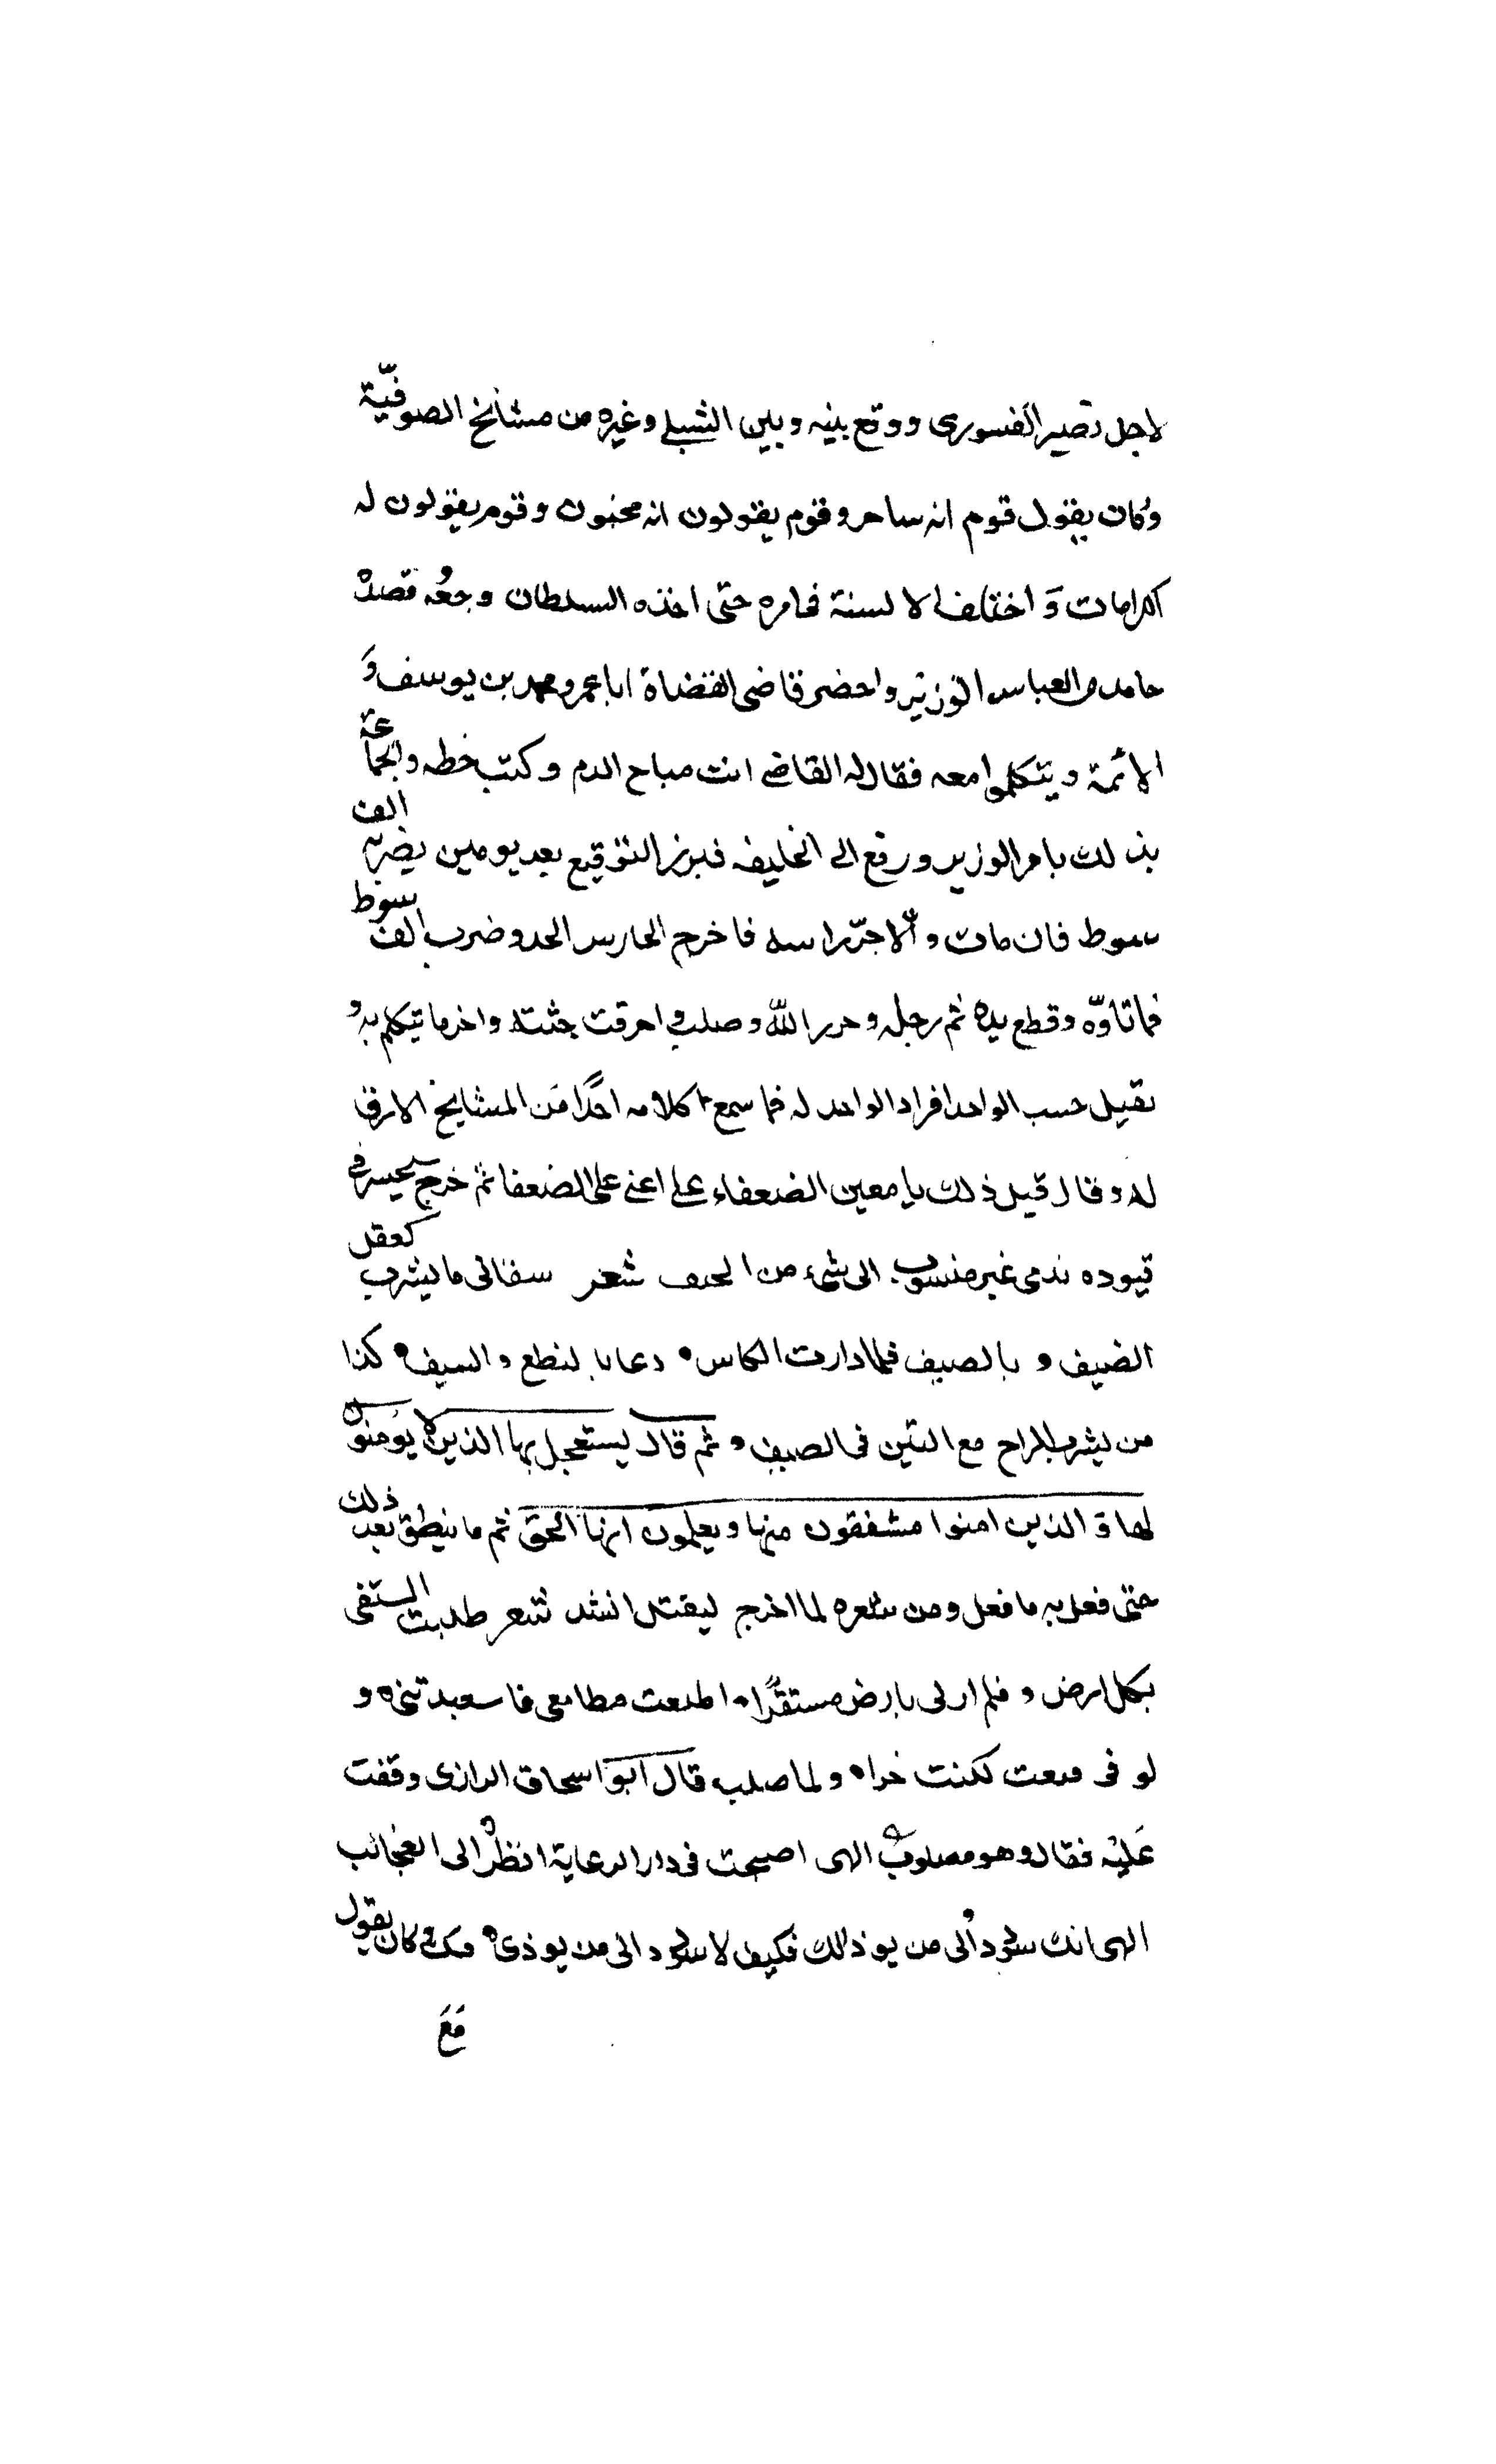 لاجل نصير القسورى ووقع بينه وبين الشبلى وغيره من مشائخ الصوفيّة
وكان يقول قوم انه ساحر وقوم يقولون انه مجنون وقوم يقولون له
اكرامات و اختلف الالسنة فى امره حتى اخذه السلطان وجمعه قصد
حامد بن العباس الوزير واحضر قاضى القضاة ابا عمر ومحمد بن يوسف و
الائمة ويتكلموا معه فقال له القاضى انت مباح الدم وكتب خطه والجماعة
بذلك بامر الوزير ورفع الى الخليفه فبرز التوقيع بعد يومين يضربه الف
سوط فان مات والا جزّ راسه فاخرج الحارس الحد وضرب الف سوط
فما تاوّه وقطع يده ثم رجله وحرر الله وصلب واحرقت جثته واخر ما تيكلم به و
قيل حسب الواحد افراد الواحد له فما سمع كلامه احدًا من المشايخ الا رق
له وقال قبل ذلك يا معين الضعفاء على اعنى على الضعفا ثم خرج فى
قيوده ندمى غير منسوب الى شىء من الحيف شعر سقانى ما يشرب كفعل
الضيف و بالصيف فلما دارت الكاس دعا بالنطع والسيف كذا
من يشرب الراح مع التنين فى الصيف ثم قال يستعجل بها الذين لا يؤمنون
بها و الذين امنوا مشفقون منها ويعلمون انها الحق ثم ما ينطق بعد ذلك
حتى فعل به ما فعل ومن شعره لما اخرج ليقتل انشد شعر طلبت المستقى
بكل ارض و فلم ار لى بارض مستقرًا اطعت مطامعى فاستعبدتنى و
لو قنعت لكنت حرا ولما صلب قال ابو اسحاق الرازى وقفت
عليه فقال وهو مصلوب الهى اصبحت فى دار الرعاية انظر الى العجائب
الهى انك تتودد الى من يوذيك فكيف لا تتودد الى من يوذى فيك كان يقول
مع